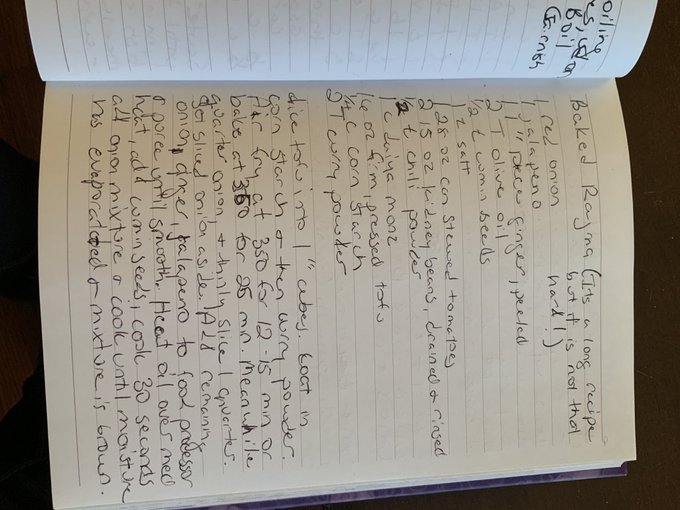 oiling
boil
Baked Rajma (Its a long recipe
but it is not that
hard!)
1 red onion
1 jalapeno
1 1" piece ginger, peeled
2 T olive oil
1/2 t cumin seeds
1 t salt
1 28 oz can stewed tomatoes
2 15 oz kidney beans, drained & rinsed
1/2 t chili powder
1 c daiya morz
16 oz firm, pressed tofu
1/4 c corn starch
2 T curry powder
dice tofu into 1" cubes. Coat in
corn starch & then curry powder.
Air fry at 350 for 12-15 min or
bake at 350 for 25 min. Meanwhile
quarter onion & thinly slice 1 quarter.
Set sliced onion aside. Add remaining
onion, ginger, jalapeno to food processor
& puree until smooth. Heat oil over med
heat, add cumin seeds, cook 30 seconds
add onion mixture & cook until moisture
has evaporated & mixture is brown.